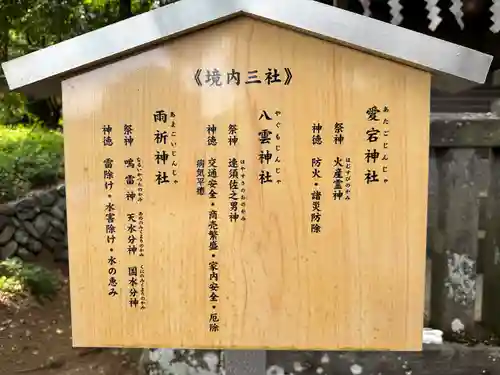 《境内三社》
愛宕神社
あたごじんじゃ
祭神 火産霊神
ほむすびのかみ
神徳 防火・諸災防除
八雲神社
やくもじんじゃ
祭神 速須佐之男神
はやすさのおのかみ
神徳 交通安全・商売繁盛・家内安全・厄除
病気平癒
雨祈神社
あまごいじんじゃ
祭神 鳴雷神 天水分神 国水分神
なるいかづちのかみ あめのみくまりのかみ くにのみくまりのかみ
神徳 雷除け・水害除け・水の恵み